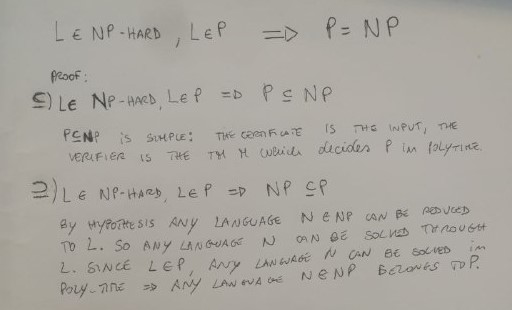 L ∈ NP-HARD, L∈P ⟹ P = NP
PROOF:
⊆) L∈ NP-HARD, L∈P ⟹ P ⊆ NP
P⊆NP IS SIMPLE: THE CERTIFICATE IS THE INPUT, THE
VERIFIER IS THE TM M which decides P in polytime.
⊇) L ∈ NP-HARD, L∈P ⟹ NP ⊆P
BY HYPOTHESIS ANY LANGUAGE N ∈ NP CAN BE REDUCED
TO L. SO ANY LANGUAGE N CAN BE SOLVED THROUGH
L. SINCE L∈P, ANY LANGUAGE N CAN BE SOLVED in
POLY-TIME ⟹ ANY LANGUAGE N∈NP BELONGS TO P.